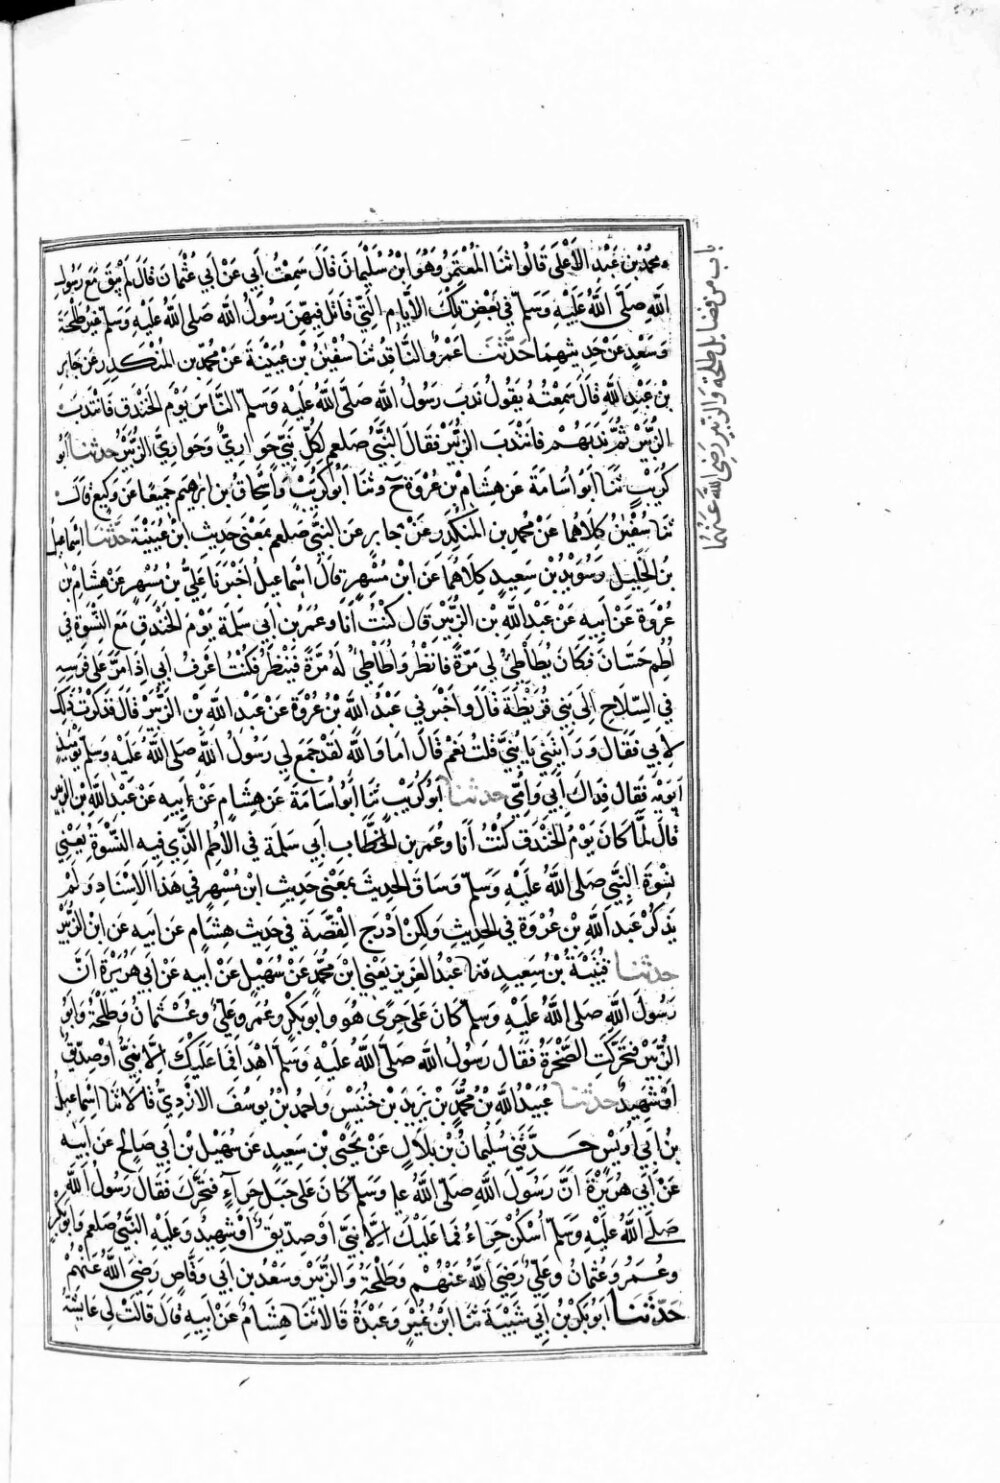 محمد بن عبد الاعلى قالوا ثنا المعتمر وهو ابن سليمان قال سمعت ابي عن ابي عثمان قال لم يبق مع رسول
الله صلى الله عليه وسلم في بعض تلك الايام التي قاتل فيهن رسول الله صلى الله عليه وسلم غير طلحة
وسعد عن حديثهما حدثنا عمرو الناقد ثنا سفين بن عيينة عن محمد بن المنكدر عن جابر
بن عبد الله قال سمعته يقول ندب رسول الله صلى الله عليه وسلم الناس يوم الخندق فانتدب
الزبير ثم ندبهم فانتدب الزبير فقال النبي صلعم لكل نبي حواري وحواري الزبير حدثنا ابو
كريب ثنا ابو اسامة عن هشام بن عروة ح وثنا ابو كريب واسحاق بن ابرهيم جميعا عن وكيع قال
ثنا سفين كلاهما عن محمد بن المنكدر عن جابر عن النبي صلعم بمعنى حديث ابن عيينة حدثنا اسماعيل
بن الخليل وسويد بن سعيد كلاهما عن ابن مسهر قال اسماعيل اخبرنا علي بن مسهر عن هشام بن
عروة عن ابيه عن عبد الله بن الزبير قال كنت انا وعمر بن ابي سلمة يوم الخندق مع النسوة في
اطم حسان فكان يطاطئ لي مرة فانظر واطاطئ له مرة فينظر فكنت اعرف ابي اذا مر على فرسه
في السلاح الى بني قريظة قال واخبرني عبد الله بن عروة عن عبد الله بن الزبير قال فذكرت ذلك
لابي فقال ورايتني يا بني قلت نعم قال اما والله لقد جمع لي رسول الله صلى الله عليه وسلم يومئذ
ابويه فقال فداك ابي وامي حدثنا ابو كريب ثنا ابو اسامة عن هشام عن ابيه عن عبد الله بن الزبير
قال لما كان يوم الخندق كنت انا وعمر بن الخطاب ابي سلمة في الاطم الذي فيه النسوة يعني
نسوة النبي صلى الله عليه وسلم وساق الحديث بمعنى حديث ابن مسهر في هذا الاسناد ولم
يذكر عبد الله بن عروة في الحديث ولكن ادرج القصة في حديث هشام عن ابيه عن ابن الزبير
حدثنا قتيبة بن سعيد ثنا عبد العزيز يعني ابن محمد عن سهيل عن ابيه عن ابي هريرة ان
رسول الله صلى الله عليه وسلم كان على حرى هو وابو بكر وعمر وعلي وعثمان وطلحة وابو
الزبير فتحركت الصخرة فقال رسول الله صلى الله عليه وسلم اهدا فما عليك الا نبي او صديق
او شهيد حدثنا عبيد الله بن محمد بن يزيد بن خنيس واحمد بن يوسف الازدي قالا ثنا اسماعيل
بن ابي اويس حدثني سليمان بن بلال عن يحيى بن سعيد عن سهيل بن ابي صالح عن ابيه
عن ابي هريرة ان رسول الله صلى الله عليه وسلم كان على جبل حراء فتحرك فقال رسول الله
صلى الله عليه وسلم اسكن حراء فما عليك الا نبي او صديق او شهيد وعليه النبي صلعم وابو بكر
وعمر وعثمان وعلي رضي الله عنهم وطلحة والزبير وسعد بن ابي وقاص رضي الله عنهم
حدثنا ابو بكر بن ابي شيبة ثنا ابن نمير وعبدة قالا ثنا هشام عن ابيه قال قالت لي عايشة
باب من فضايل طلحة والزبير رضي الله عنهما